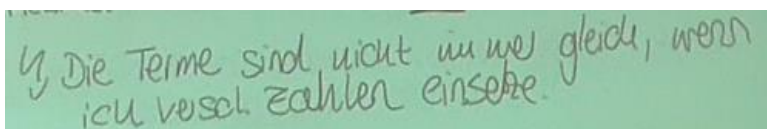 4) Die Terme sind nicht immer gleich, wenn
ich versch. Zahlen einsetze.